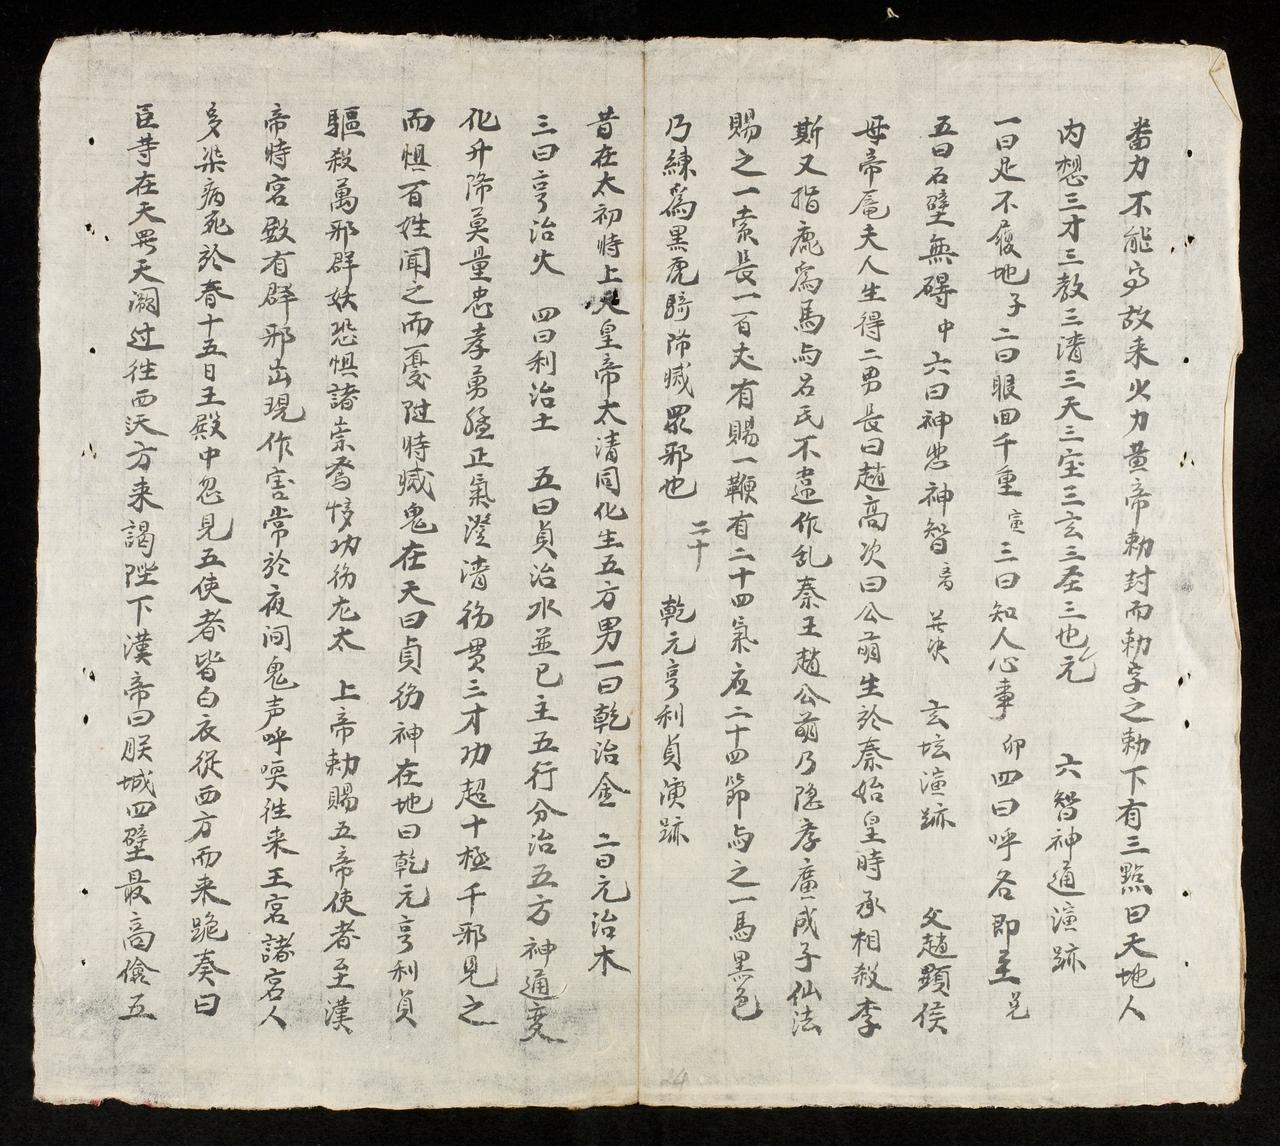 畨力不能寫故来火力黄帝勅封而勅字之勅下有三點曰天地人
内想三才三教三清三天三宝三玄三台三也元 六智神通演跡
一曰足不履地子二曰眼回千重寅三曰知人心事卯四曰呼各即至兌
五曰石壁無碍中六曰神悲神智 玄坛演跡 父趙顕侯
母帝奄夫人生得二男長曰趙高次曰公萌生於秦始皇時承相殺李
斯又指鹿為馬与呂氏不違作乱秦王趙公萌乃隐孝廣成子仙法
賜之一索長一百丈有賜一鞭有二十四氣应二十四節与之一馬黒色
乃練為黒虎騎斾滅眾邪也 二十 乾元亨利貞演跡
昔在太初時上天皇帝太清同化生五方男一曰乾治金 二曰元治木
三曰亨治火 四曰利治土 五曰貞治水並已主五行分治五方神通変
化升降莫量忠孝勇猛正氣澄清彷貫三才功超十極千邪見之
而惧百姓聞之而憂附時滅鬼在天曰貞彷神在地曰乾元亨利貞
驅殺萬邪群妖恐惧諸祟奔移功彷尨太 上帝勅賜五帝使者至漢
帝時宮殿有群邪出現作害常於夜间鬼声呼喚徃来王宮諸宮人
多染病死於春十五日王殿中忽見五使者皆白衣従西方而来跪奏曰
臣等在天界天朔过徃西天方来謁陛下漢帝曰朕城四壁最高儉五